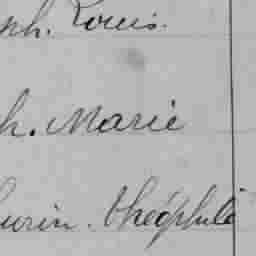 ph. Louis.
h. Marie
urin. théophile